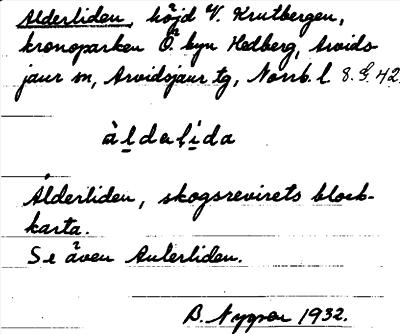 Ålderliden, höjd V. Krutbergen,
kronoparken Ö. byn Hedberg, Arvids-
jaur sn, Arvidsjaur tg, Norrb. l. 8. G. 42.
àldalída
Ålderliden, skogsrevirets block-
karta.
Se även Aulerliden.
B. Nygren 1932.